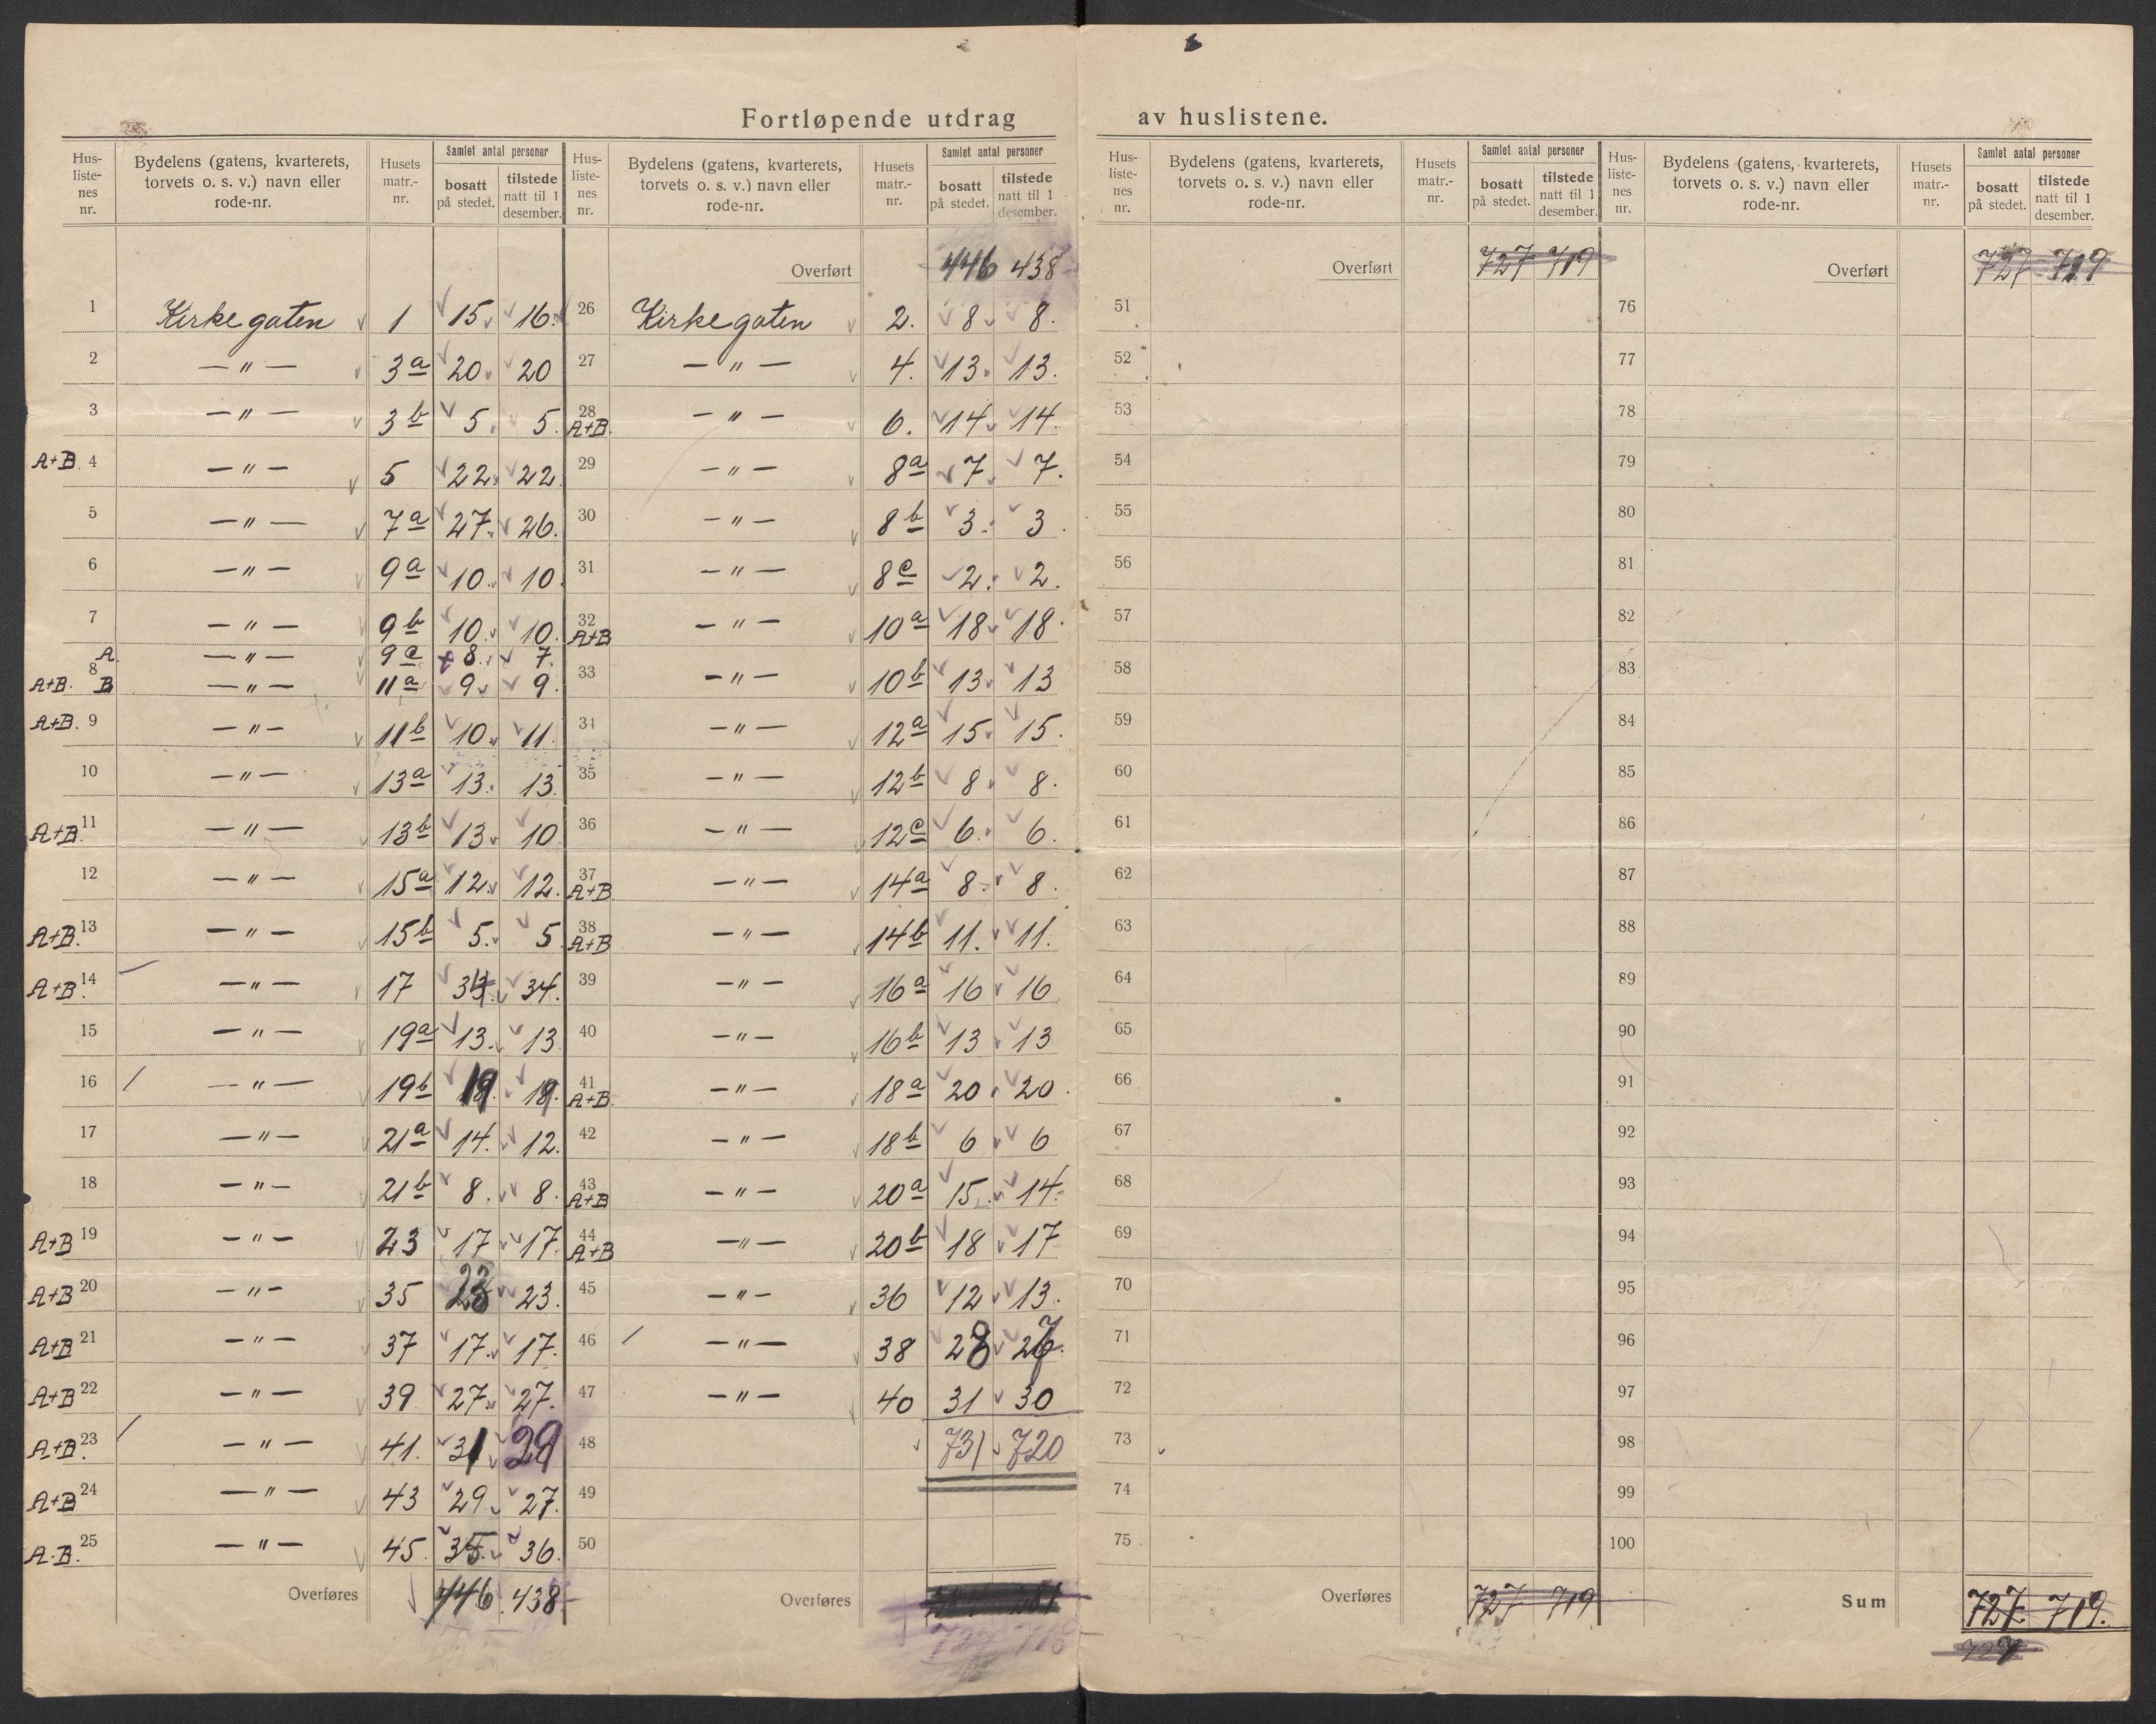 Fortløpende utdrag av huslistene.
Hus-liste-nes nr. Bydelens (gatens, kvarterets, torvets o. s. v.) navn eller rode-nr. Husets matr.-nr. Samlet antal personer bosatt på stedet. tilstede natt til 1 desember.
1 Kirkegaten 1 15. 16.
2 — " — 3a 20. 20
3 — " — 3b 5. 5.
A+B. 4 — " — 5 22. 22.
5 — " — 7a 27. 26.
6 — " — 9a 10. 10.
7 — " — 9b 10. 10.
8 A. — " — 9c 8. 7.
A+B. B — " — 11a 9. 9.
A+B. 9 — " — 11b 10. 11.
10 — " — 13a 13. 13.
A+B. 11 — " — 13b 13. 10
12 — " — 15a 12. 12.
A+B. 13 — " — 15b 5. 5.
A+B. 14 — " — 17 34. 34.
15 — " — 19a 13. 13
16 — " — 19b 19. 19.
17 — " — 21a 14. 12.
18 — " — 21b 8. 8.
A+B 19 — " — 23 17 17.
A+B 20 — " — 35 23 23.
A+B 21 — " — 37 17. 17.
A+B 22 — " — 39 27. 27.
A+B. 23 — " — 41. 31 29
A+B 24 — " — 43 29. 27.
A.B. 25 — " — 45. 35. 36.
Overføres 446 438
Hus-liste-nes nr. Bydelens (gatens, kvarterets, torvets o. s. v.) navn eller rode-nr. Husets matr.-nr. Samlet antal personer bosatt på stedet. tilstede natt til 1 desember.
Overført 446 438
26 Kirkegaten 2. 8 8.
27 — " — 4. 13. 13.
28 A+B. — " — 6. 14 14.
29 — " — 8a 7. 7.
30 — " — 8b 3. 3.
31 — " — 8c 2. 2.
32 A+B — " — 10a 18 18.
33 — " — 10b 13. 13
34 — " — 12a 15. 15.
35 — " — 12b 8 8.
36 — " — 12c 6. 6.
37 A+B — " — 14a 8. 8.
38 A+B — " — 14b 11. 11.
39 — " — 16a 16 16
40 — " — 16b 13 13
41 A+B. — " — 18a 20 20.
42 — " — 18b 6 6
43 A+B — " — 20a 15. 14.
44 A+B — " — 20b 18 17
45 — " — 36 12 13.
46 — " — 38 28 27.
47 — " — 40 31 30
48 731 720
49
50
Overføres
Hus-liste-nes nr. Bydelens (gatens, kvarterets, torvets o. s. v.) navn eller rode-nr. Husets matr.-nr. Samlet antal personer bosatt på stedet. tilstede natt til 1 desember.
Overført 727 719
51
52
53
54
55
56
57
58
59
60
61
62
63
64
65
66
67
68
69
70
71
72
73
74
75
Overføres 727 719
Hus-liste-nes nr. Bydelens (gatens, kvarterets, torvets o. s. v.) navn eller rode-nr. Husets matr.-nr. Samlet antal personer bosatt på stedet. tilstede natt til 1 desember.
Overført 727 719
76
77
78
79
80
81
82
83
84
85
86
87
88
89
90
91
92
93
94
95
96
97
98
99
100
Sum 727 719.
727